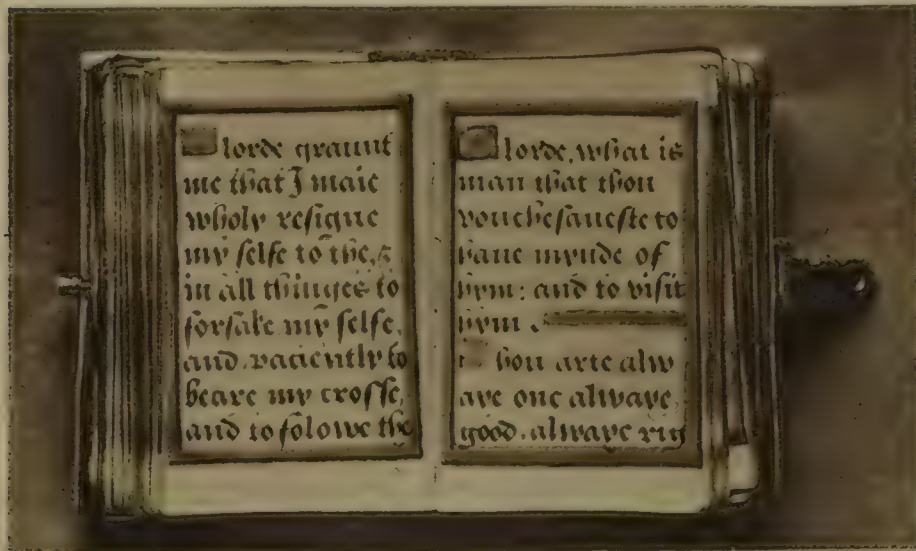 O lorde graunt
me that I maie
wholy resigne
my selfe to the, &
in all thinges to
forsake my selfe,
and paciently to
beare my crosse,
and to folowe the
O lorde, what is
man that thou
vouchesaueste to
haue mynde of
hym: and to visit
hym.
thou arte alw
aye one alwaye,
good. alwaye rig